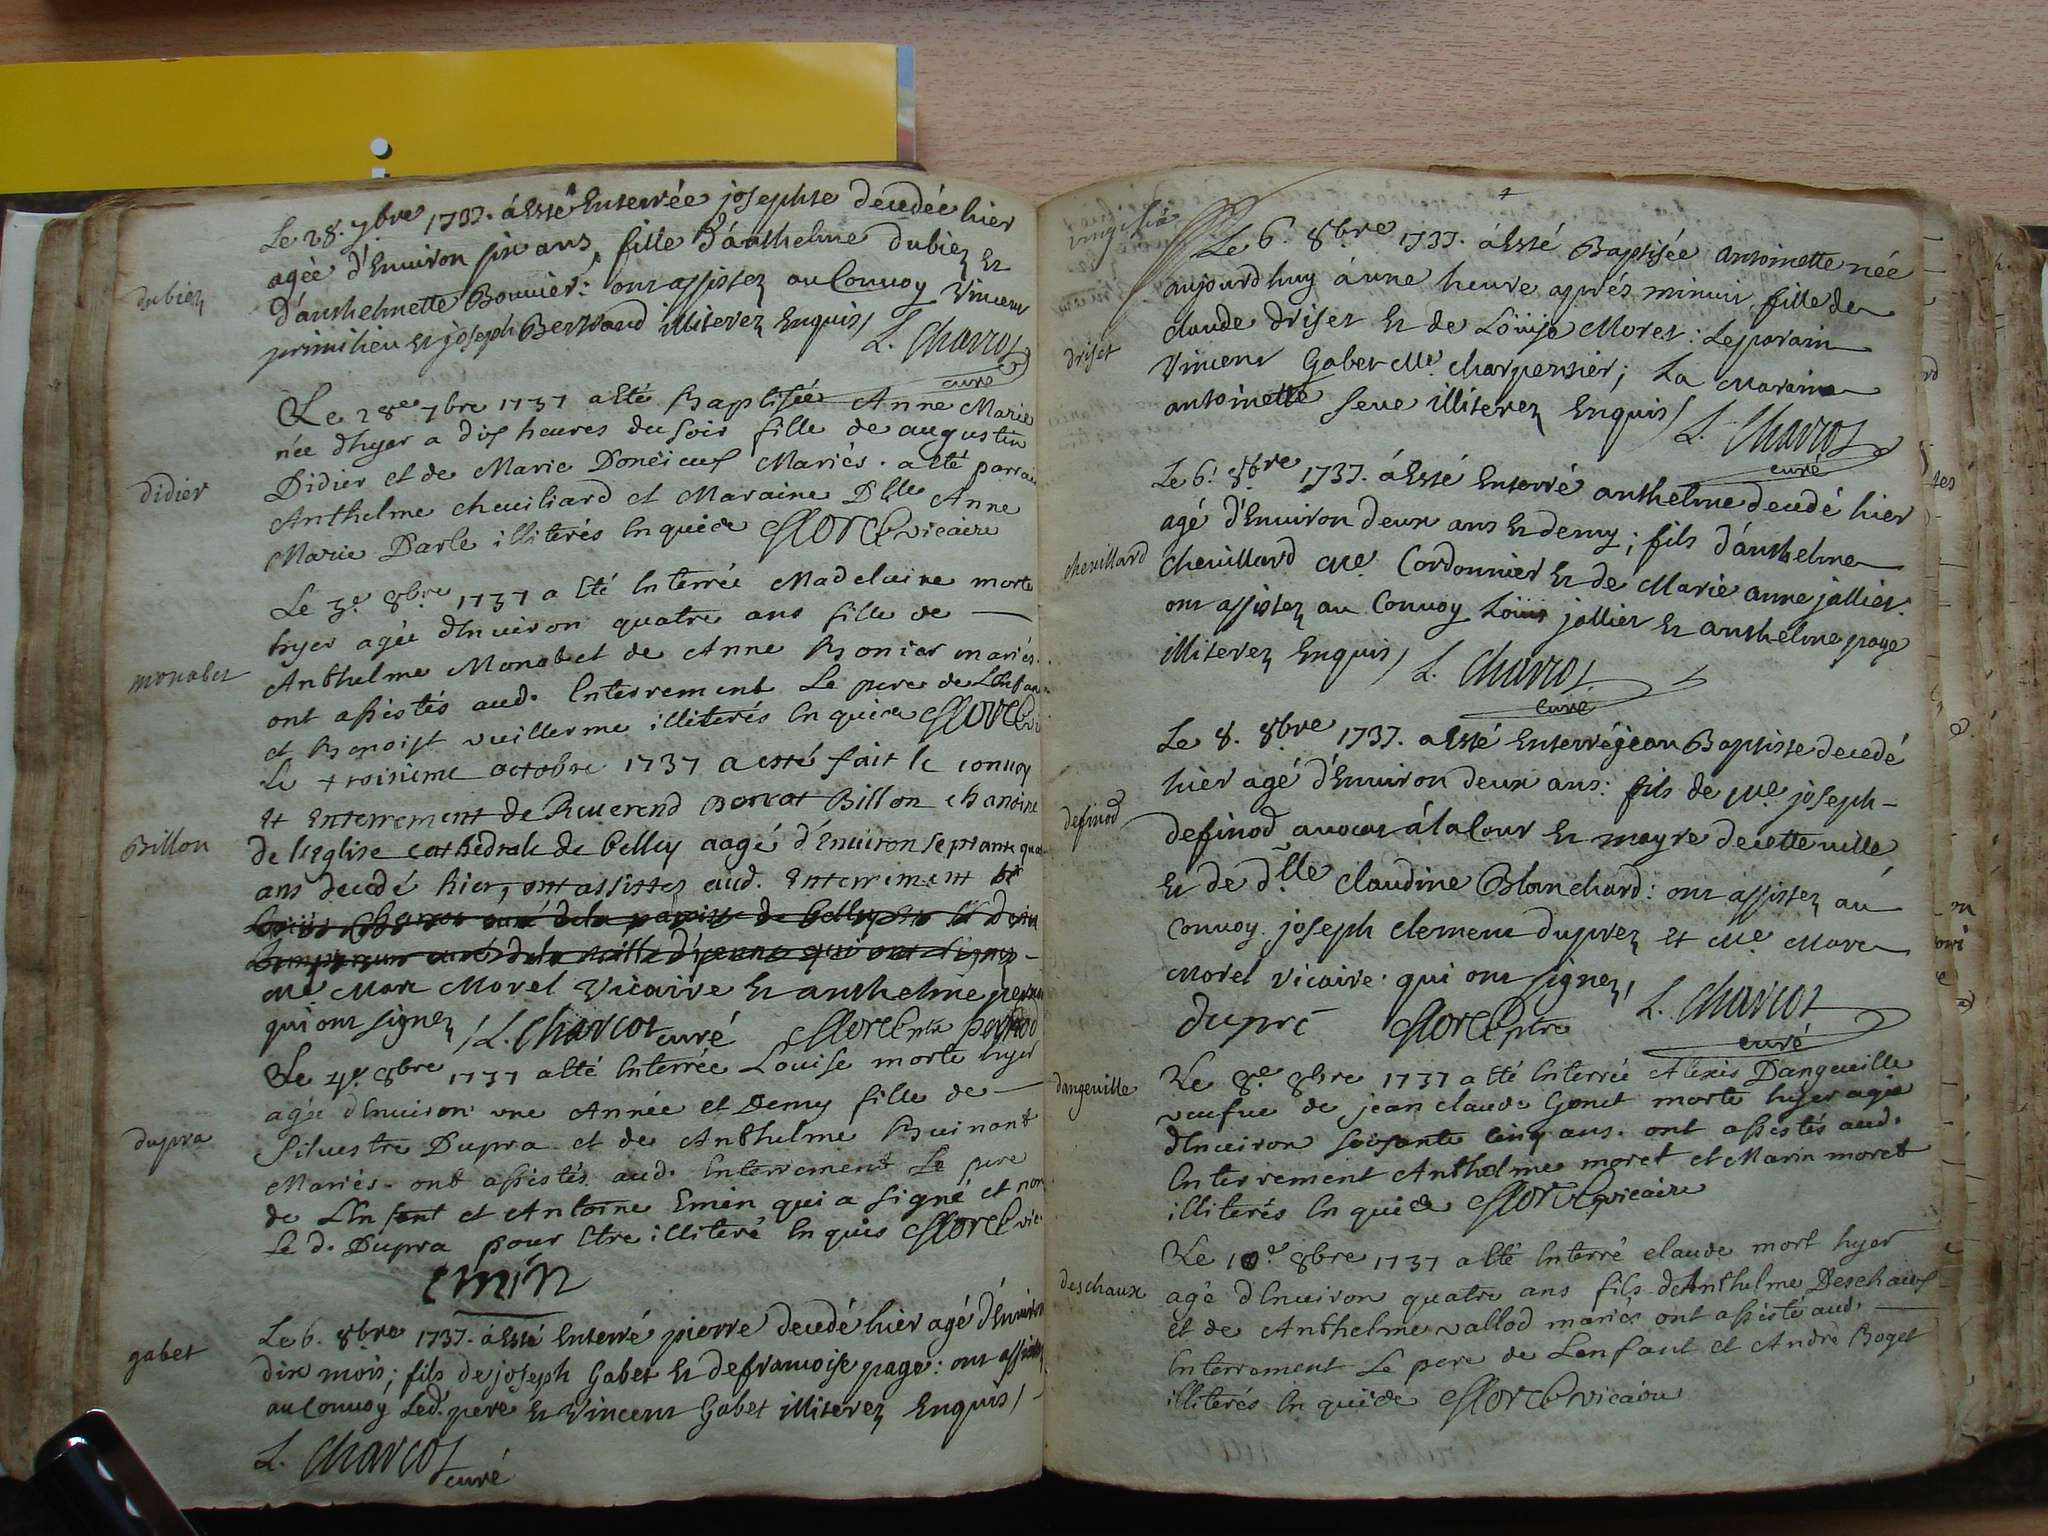 Le 28. 7bre 1737. á Esté Enterrée josephte decedée hier
agée d'Environ six ans, fille d'anthelme dubiez Et
dubiez
d'anthelmette Bouvier: ont assistez au Convoy Vincent
primilieu Et joseph Bertrand illiterez Enquis / L. Charcot
curé
Le 28e 7bre 1737 a eté Baptisée Anne Marie
née d'hyer a dix heures du soir fille de augustin
didier
Didier et de Marie Donéieux Mariés. a eté parrai
Anthelme cheuiliard et Maraine Dlle Anne
Marie Darle illiterés Enquis Morel vicaire
Le 3e. 8bre 1737 a eté Enterrée Madelaine morte
hyer agée d'Enuiron quatre ans fille de
monabet
Anthelme Monabet de Anne Bonier mariés.
ont assistés aud. Enterrement Le pere de L'Enfan
et Benoist vuillerme illiterés Enquis Morel vi
Le troisieme octobre 1737 a esté fait le conuoy
et Enterrement de Reuerend Billon chanoine
Billon
de l'Eglise cathedrale de belley aagé d'Enuiron septante qua
ans decedé hier, ont assistez aud. Enterrement
Me. Marc Morel Vicaire Et anthelme
qui ont signez / L. Charcot curé Morel ptre
Le 4e. 8bre 1737 a eté Enterrée Louise morte hyer
agée d'Enuiron une Année et Demy fille de
dupra
Siluestre Dupra et de Anthelme Buinant
Mariés. ont assistés aud. Enterrement Le pere
de L'Enfant et Antoine Emin qui a signé et non
Le d. Dupra pour Etre illiteré Enquis Morel vic.
Emin
Le 6. 8bre 1737. á Esté Enterré pierre decedé hier agé d'Enuiron
gabet
dix mois; fils de joseph Gabet Et de francoise page: ont assistez
au Conuoy Led. pere Et Vincent Gabet illiterez Enquis /
L. Charcot curé
Le 6. 8bre 1737. á Esté Baptisée antoinette née
aujourd huy á une heure aprés minuit, fille de
driset
claude driset Et de Loüise Moret: Le parain
Vincent Gabet Me. charpentier; La Maraine
antoinette seue illiterez Enquis / L. Charcot
curé
Le 6. 8bre 1737. á Esté Enterré anthelme decedé hier
agé d'Enuiron deux ans Et demy; fils d'anthelme
cheuillard
cheuillard Me. Cordonnier Et de Marie anne jallier.
ont assistez au Conuoy Loüis jallier Et anthelme page
illiterez Enquis / L. Charcot
curé
Le 8. 8bre 1737. a Esté Enterré jean Baptiste decedé
hier agé d'Enuiron deux ans: fils de Me. joseph
definod
definod auocat á la Cour Et mayre de cette uille
Et de dlle claudine Blanchard: ont assistez au
conuoy joseph clement duprez et Me. Marc
Morel vicaire. qui ont signez,
dupré Morel ptre L. Charcot
curé
Le 8e. 8bre 1737 a eté Enterrée Alexis Dangeuille
dangeuille
veufue de jean claude Gonet morte hyer agée
d'Enuiron soixante cinq ans. ont assistés aud.
Enterrement Anthelme moret et Marin moret
illiterés Enquis Morel vicaire
Le 10e. 8bre 1737 a eté Enterré claude mort hyer
deschaux
agé d'Enuiron quatre ans fils d'Anthelme Deschaux
et de Anthelme vallod mariés ont assisté aud.
Enterrement Le pere de Lenfant et André Boget
illiterés Enquis Morel vicaire